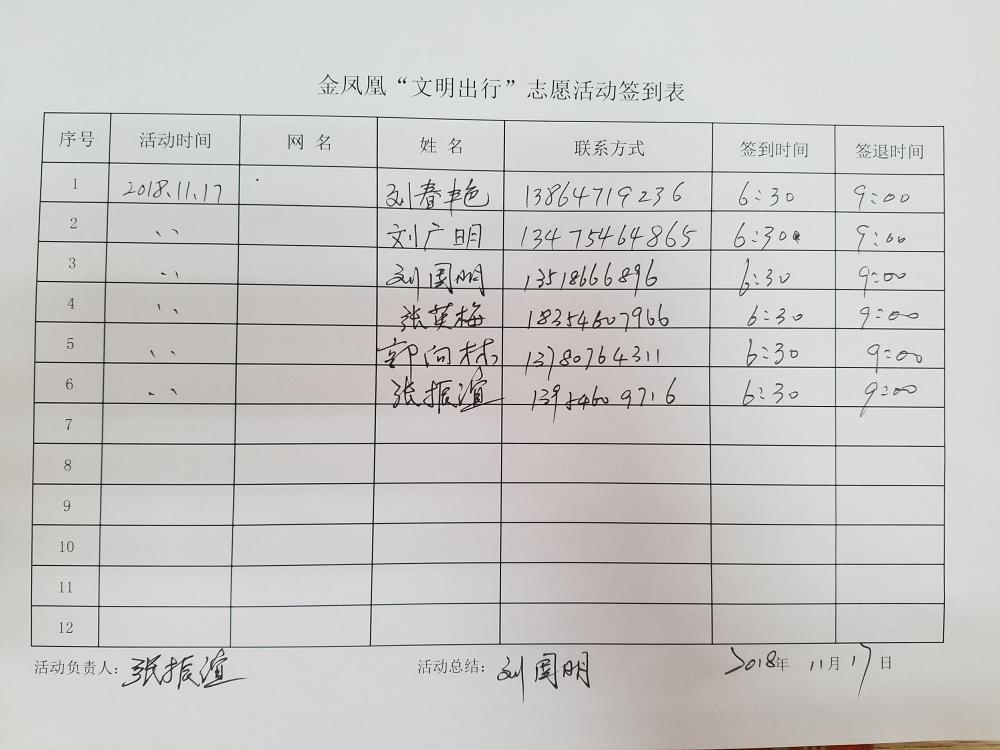 金凤凰“文明出行”志愿活动签到表
序号 活动时间 网 名 姓 名 联系方式 签到时间 签退时间
1 2018.11.17 刘春艳 13864719236 6:30 9:00
2 〃 刘广明 13475464865 6:30 9:00
3 〃 刘国明 13518666896 6:30 9:00
4 〃 张英梅 18354607966 6:30 9:00
5 〃 郭向林 13780764311 6:30 9:00
6 〃 张振谊 13954609716 6:30 9:00
7
8
9
10
11
12
活动负责人：张振谊 活动总结：刘国明 2018年 11月17日